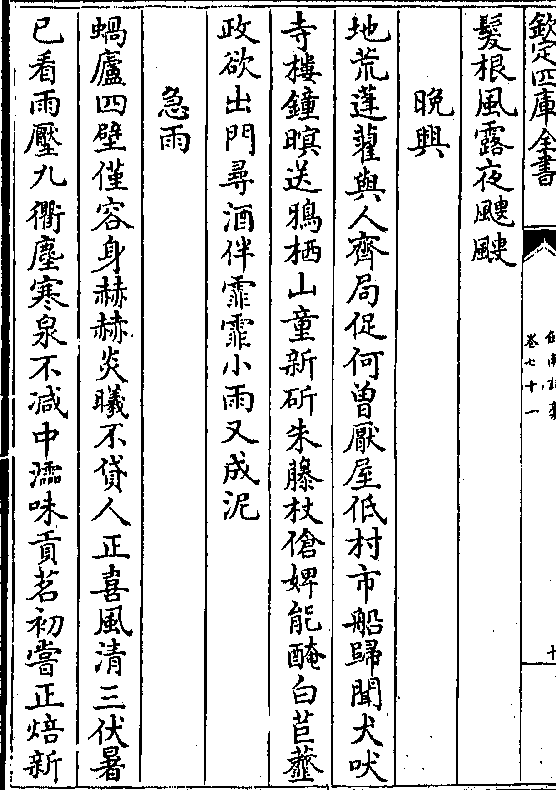 欽定四庫全書
卷七十一
髮根風露夜颼颼
晚興
地荒蓬藋與人齊局促何曾厭屋低村市船歸聞犬吠
寺樓鐘暝送鴉栖山童新斫朱藤杖傖婢能醃白苣虀
政欲出門尋酒伴霏霏小雨又成泥
急雨
蝸廬四壁僅容身赫赫炎曦不貸人正喜風清三伏暑
已看雨壓九衢塵寒泉不減中濡味貢茗初嘗正焙新